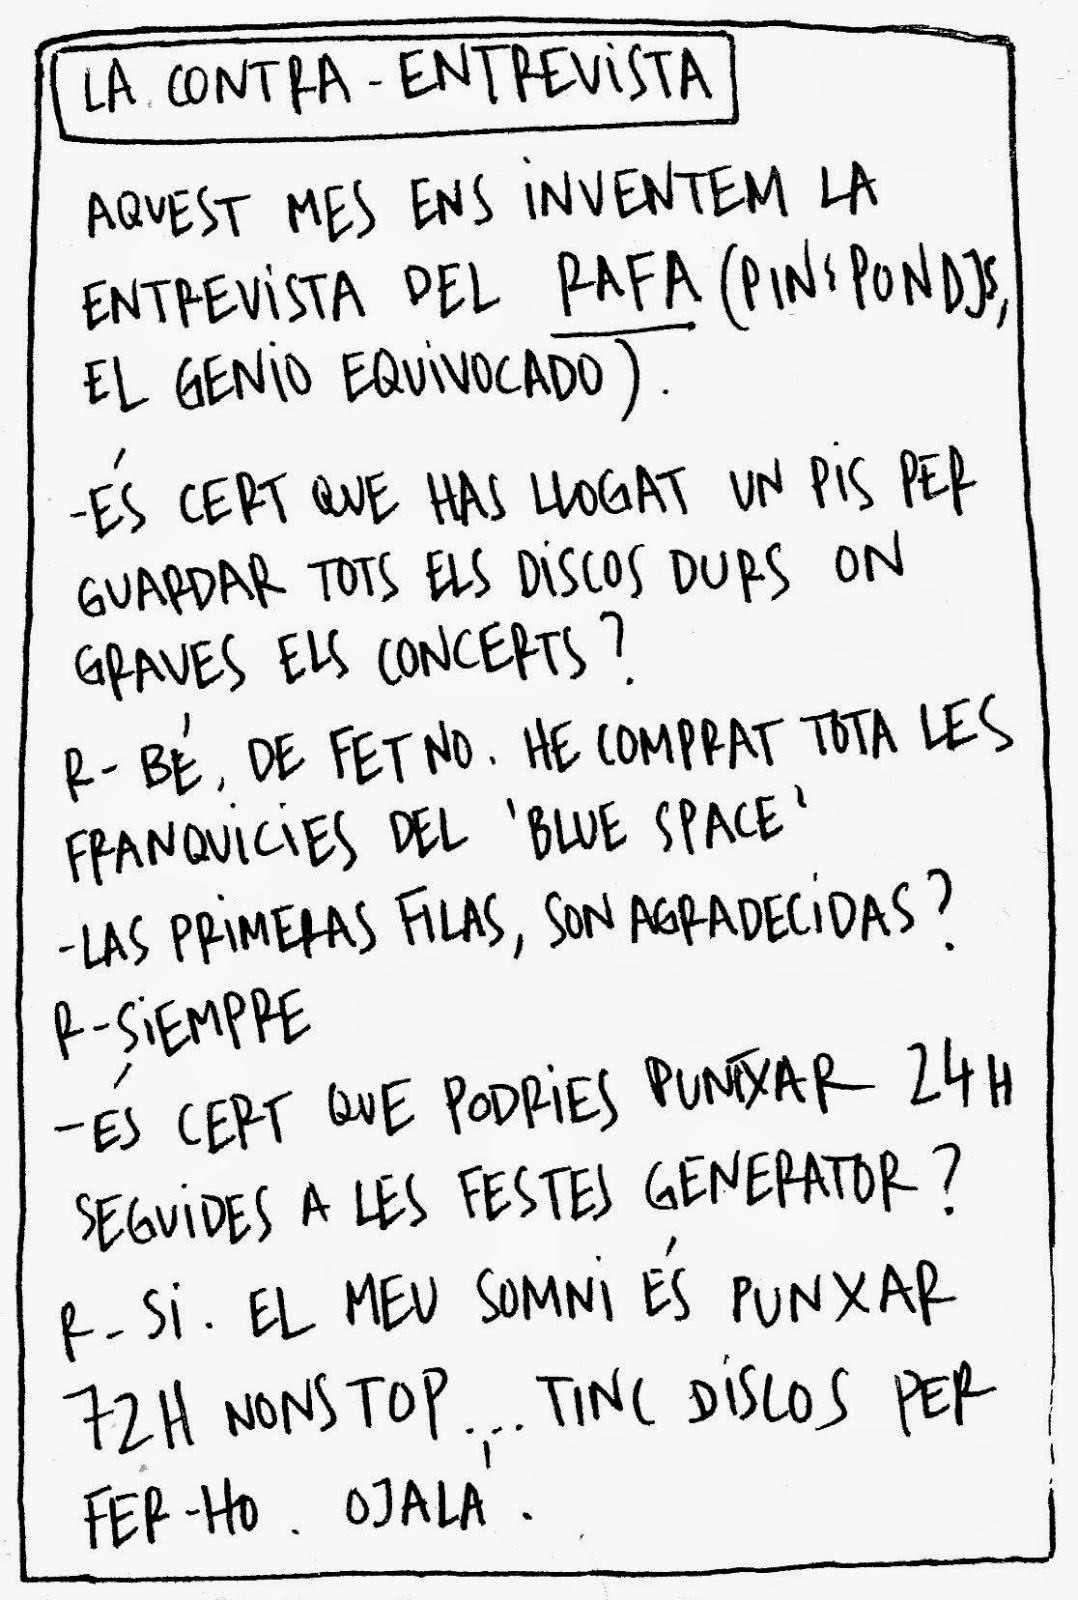 LA CONTRA-ENTREVISTA
AQUEST MES ENS INVENTEM LA
ENTREVISTA DEL RAFA (PIN&PONDJS,
EL GENIO EQUIVOCADO).
-ÉS CERT QUE HAS LLOGAT UN PIS PER
GUARDAR TOTS ELS DISCOS DURS ON
GRAVES ELS CONCERTS?
R- BÉ, DE FET NO. HE COMPRAT TOTA LES
FRANQUICIES DEL 'BLUE SPACE'
-LAS PRIMERAS FILAS, SON AGRADECIDAS?
R-SIEMPRE
-ÉS CERT QUE PODRIES PUNXAR 24H
SEGUIDES A LES FESTES GENERATOR?
R- SI. EL MEU SOMNI ÉS PUNXAR
72H NONSTOP... TINC DISCOS PER
FER-HO. OJALÁ.